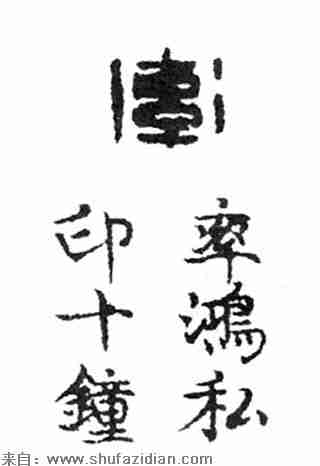 率
率鴻私
印十鐘
来自：www.shufazidian.com